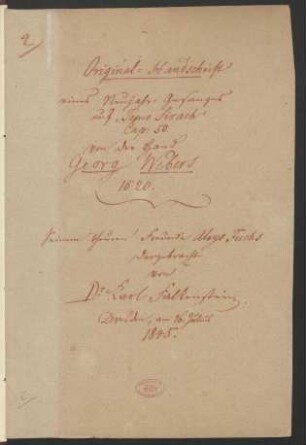 2.
Original-Handschrift
eines Neujahr-Gesanges
aus "Jesus Sirach"
Cap: 50.
von der Hand
Georg Webers
1820.
Seinem theuern Freunde Aloys Fuchs
dargebracht
von
Dr Karl Falkenstein.
Dresden, am 16 Julius
1845.